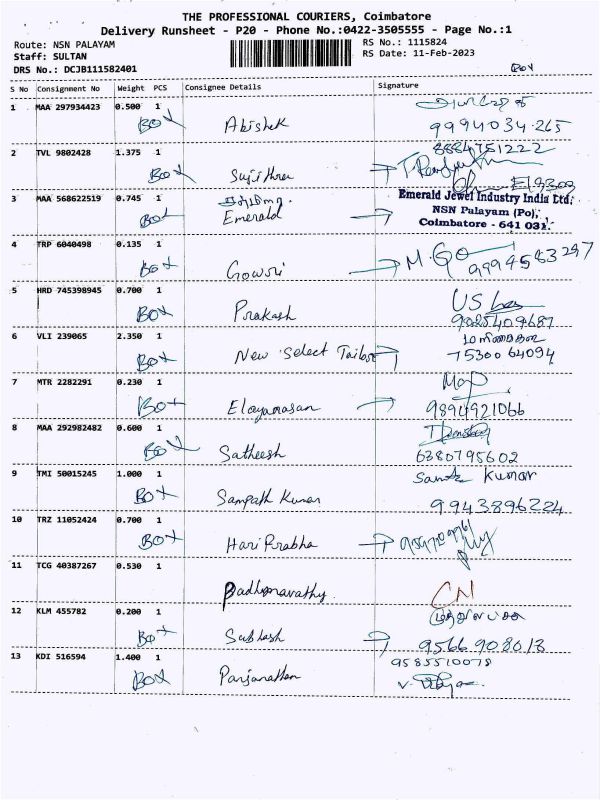 THE PROFESSIONAL COURIERS, Coimbatore
Delivery Runsheet - P20 - Phone No.:0422-3505555 - Page No.:1
Route: NSN PALAYAM RS No.: 1115824
Staff: SULTAN RS Date: 11-Feb-2023
DRS No.: DCJB111582401 Box
S No Consignment No Weight PCS Consignee Details Signature
1 MAA 297934423 0.500 1
Box Abishek 9994034265
2 TVL 9802428 1.375 1 8884751222
Box Sujithra
3 MAA 568622519 0.745 1 Emerald Jewel Industry India Ltd.
Box Emerald NSN Palayam (Po),
Coimbatore - 641 031.
4 TRP 6040498 0.135 1
Box Gowsri M. Go 9994583297
5 HRD 745398945 0.700 1
Box Prakash 9025409687
6 VLI 239065 2.350 1
Box New Select Tailor 75300 64094
7 MTR 2282291 0.230 1
Box Elayarasan 9894921066
8 MAA 292982482 0.600 1
Box Satheesh 6380795602
9 TMI 50015245 1.000 1 Kumar
Box Sampath Kumar 9943896224
10 TRZ 11052424 0.700 1
Box Hari Prabha
11 TCG 40387267 0.530 1
Padhmavathy CN
12 KLM 455782 0.200 1
Box Subhash 9566908013
13 KDI 516594 1.400 1 9585510078
Box Panjanathan